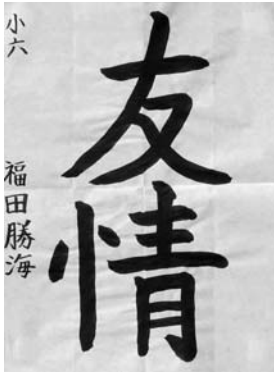 友情
小六 福田勝海